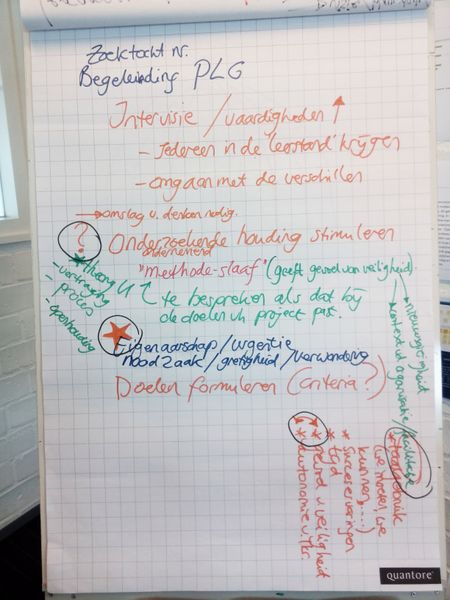 Zoektocht nr.
Begeleiding PLG
Intervisie / vaardigheden
- Iedereen in de 'leerstand' krijgen
- omgaan met de verschillen
→ omslag v. denken nodig.
? Onderzoekende houding stimuleren
ondernemend
"methode-slaaf" (geeft gevoel van veiligheid)
* theory U
- vertraging
- proces
- openhouding
te bespreken als dat bij
de doelen v.h. project past.
Eigenaarschap / urgentie
noodzaak / gretigheid / verwondering
Doelen formuleren (criteria?)
* taalgebruik
(we moeten, we
kunnen....)
* succeservaringen
* tijd
* gevoel v. veiligheid
* autonomie v. lkr.
quantore